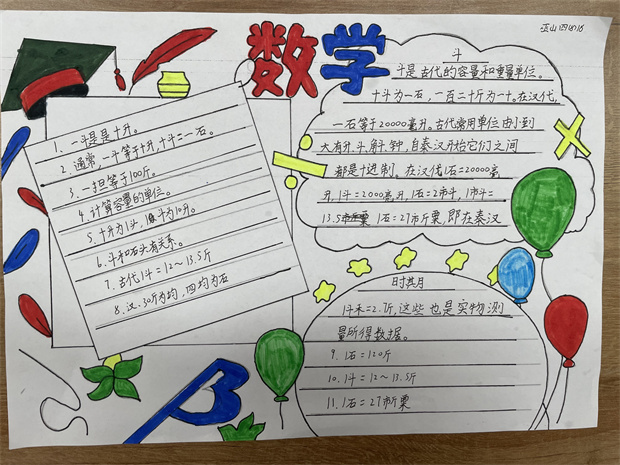 数学
1. 一斗是是十升。
2. 通常,一斗等于十升,十斗=一石。
3. 一担等于100斤。
4. 计算容量的单位。
5. 十升为1头,1斗为10升。
6. 斗和石头有关系。
7. 古代1斗=12~13.5斤
8. 汉.30斤为钧,四钧为石
斗
斗是古代的容量和重量单位。
十斗为一石,一百二十斤为一十。在汉代,
一石等于20000毫升。古代常用单位由小到
大有升.斗.斛.钟,自秦汉开始它们之间
都是十进制。在汉代1石=20000毫
升,1斗=2000毫升,1石=2市斗,1市斗=
13.5市斤粟 1石=27市斤粟,即在秦汉
时其月
1斗米=2.7斤,这些也是实物测
量所得数据。
9. 1石=120斤
10. 1斗=12~13.5斤
11. 1石=27市斤粟